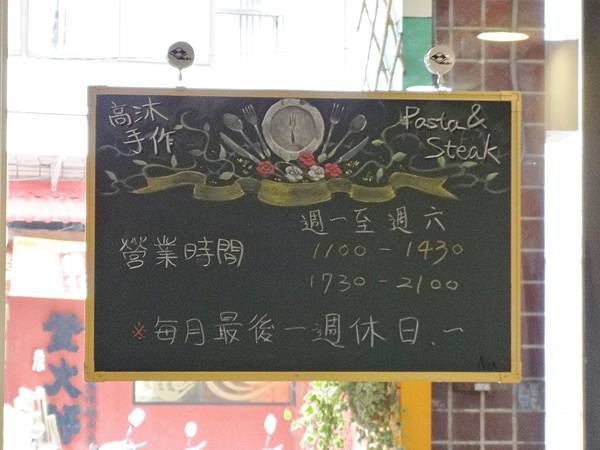 高沐
手作
Pasta &
Steak
週一至週六
營業時間 1100 - 1430
1730 - 2100
※每月最後一週休日、一